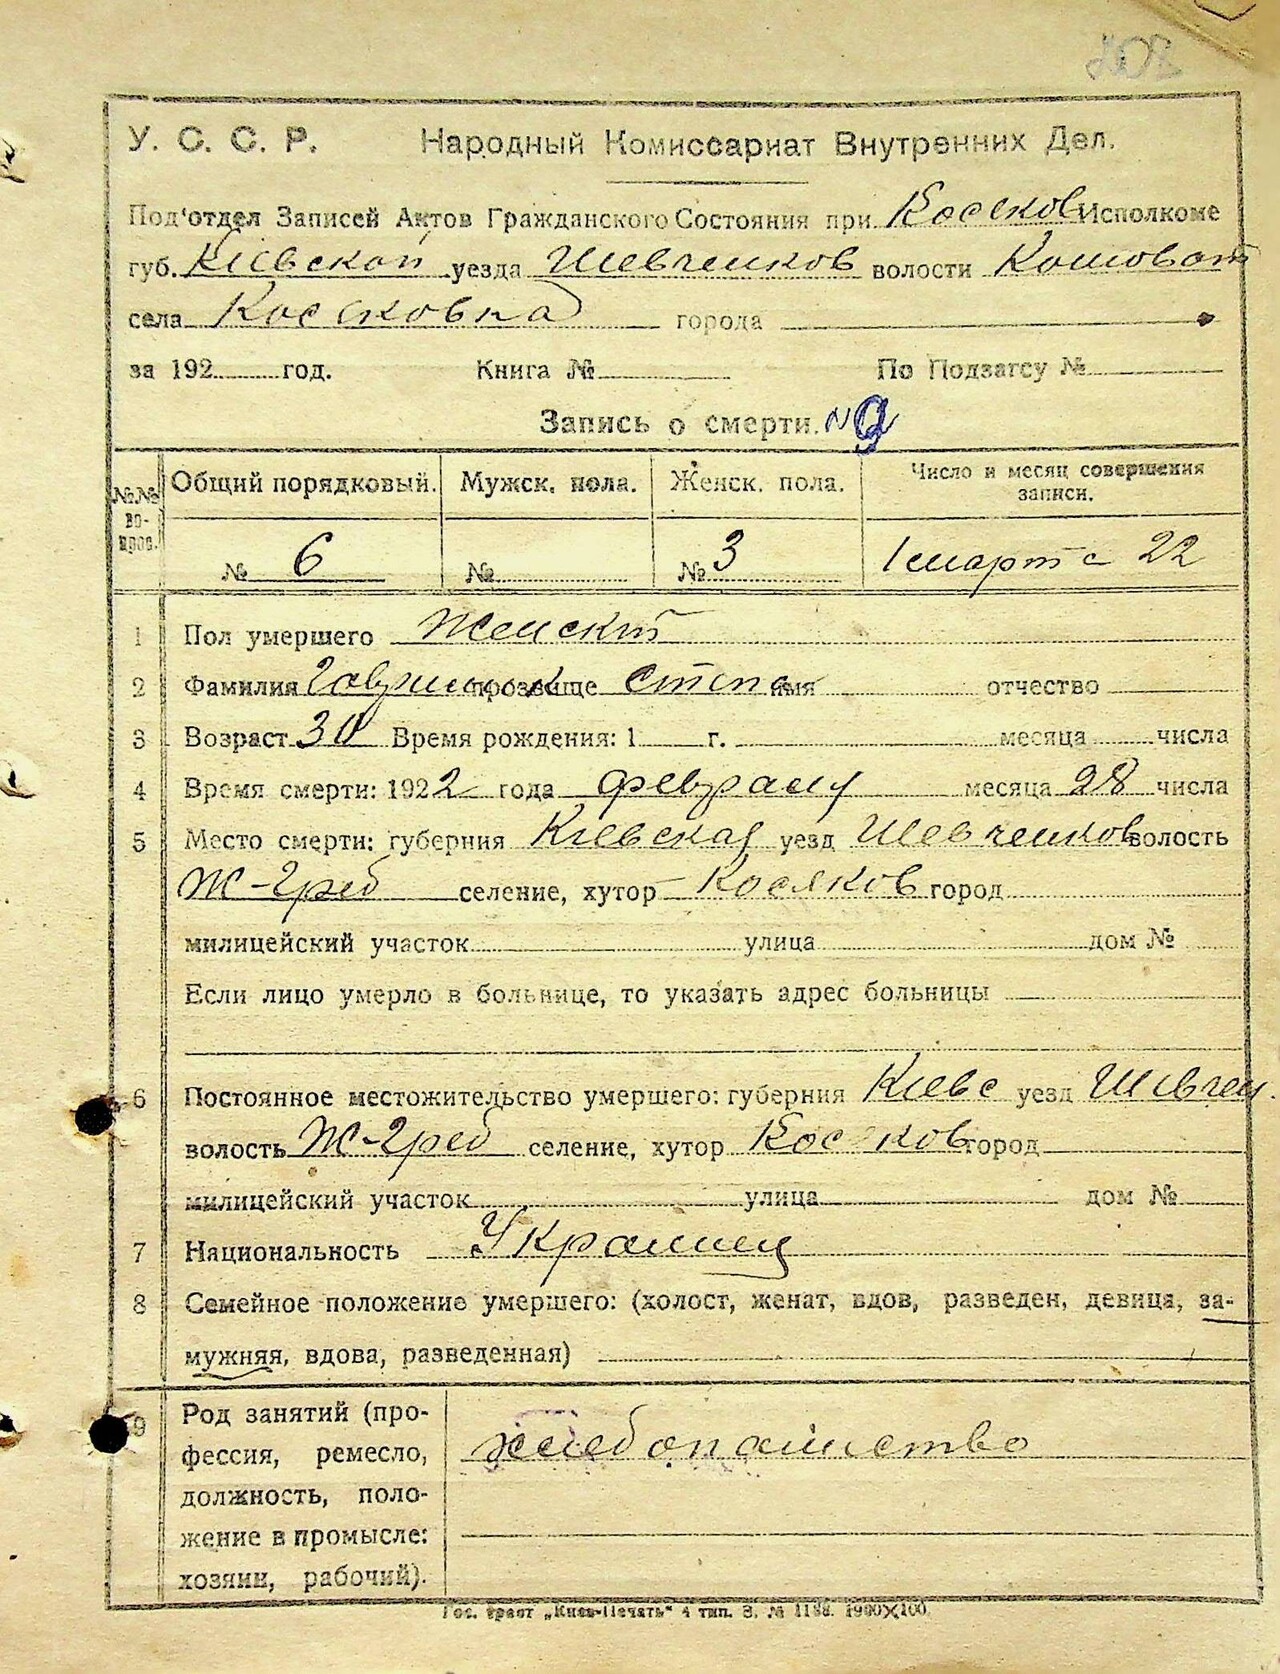 У. С. С. Р. Народный Комиссариат Внутренних Дел.
Под'отдел Записей Актов Гражданского Состояния при Косяков Исполкоме
губ. Кіевской уезда Шевченков волости Кошоват
села Косяковка города
за 192 год. Книга № По Подзагсу №
Запись о смерти. № 9
№№ вопрос. Общий порядковый. Мужск. пола. Женск. пола. Число и месяц совершения записи.
№ 6 № № 3 1 марта 22
1 Пол умершего Женский
2 Фамилия прозвище имя отчество
3 Возраст 30 Время рождения: 1 г. месяца числа
4 Время смерти: 1922 года февраля месяца 28 числа
5 Место смерти: губерния Кіевская уезд Шевченков волость
Ж-Греб селение, хутор Косяков город
милицейский участок улица дом №
Если лицо умерло в больнице, то указать адрес больницы
6 Постоянное местожительство умершего: губерния Кіевс уезд Шевчен.
волость Ж-Греб селение, хутор Косяков город
милицейский участок улица дом №
7 Национальность Украинец
8 Семейное положение умершего: (холост, женат, вдов, разведен, девица, за-
мужняя, вдова, разведенная)
9 Род занятий (про-
фессия, ремесло,
должность, поло-
жение в промысле:
хозяин, рабочий).
хлебопашество
Гос. трест „Киев-Печать“ 4 тип. З. № 1188. 1900×100.